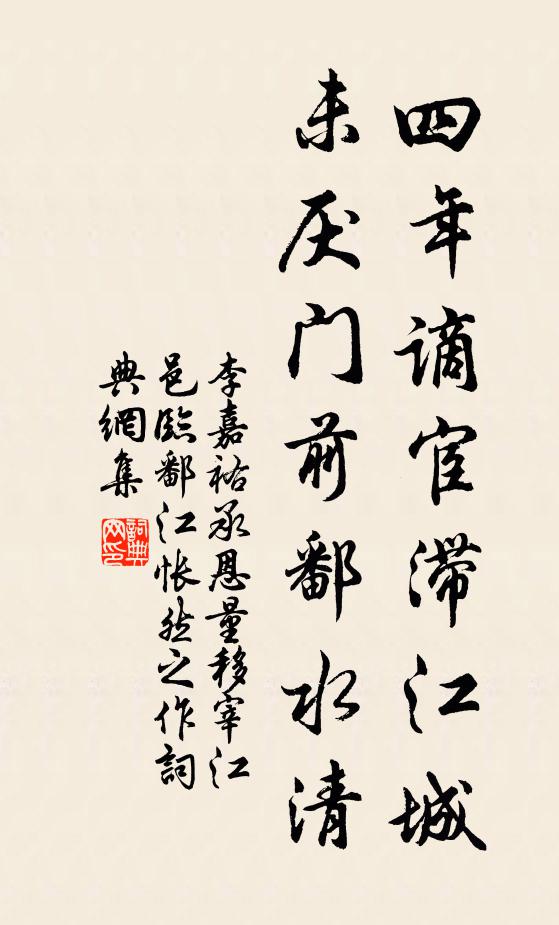 四年谪宦滞江城
未厌门前鄱水清
李嘉祐承恩量移宰江
邑臨鄱江怅然之作詞
典網集
詞典
网印